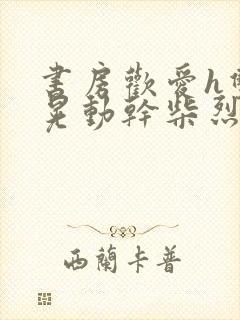 書房歡愛h
晃動幹柴烈
西蘭卡普